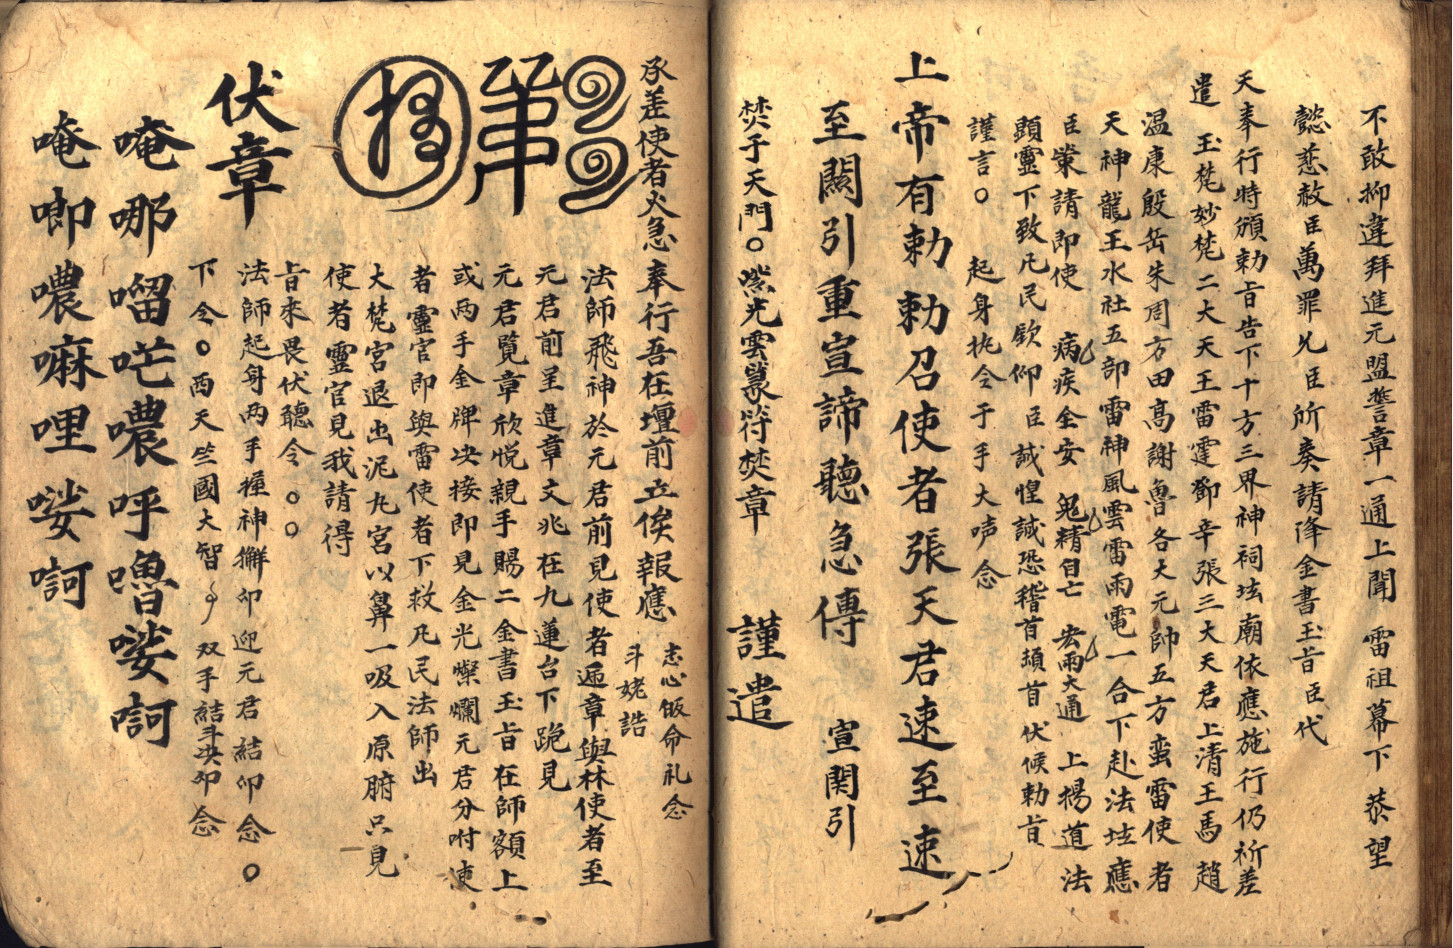 不敢抑違拜進元盟誓章一通上聞 雷祖幕下 恭望
懿慈赦臣萬罪允臣所奏請降金書玉旨臣代
天奉行時頒勅旨告下十方三界神祠坛廟依應施行仍祈差
遣 玉梵妙梵二大天王雷霆鄧辛張三大天君上清王馬趙
温康殷岳朱周方田高謝魯各大元帥五方蛮雷使者
天神龍王水社五部雷神風雲雷雨電一合下赴法坛應
臣策請即使 病疾全安 鬼精自亡 宏雨大通 上揚道法
顕靈下致凡民欽仰臣誠惶誠恐稽首頓首 伏候勅旨
謹言○ 起身执令于手大声念
上帝有勅勅召使者張天君速至速
至闕引重宣諦聽急傳 宣関引
焚于天門○紫光雲篆符焚章 謹遣
承差使者火急奉行吾在壇前立俟報應 志心皈命礼念
斗姥誥
法師飛神於元君前見使者逓章與林使者至
元君前呈進章文兆在九蓮台下跪見
元君覧章欣悦親手賜二金書玉旨在師額上
或两手金牌决接即見金光燦爛元君分咐使
者靈官即與雷使者下救凡民法師出
大梵宮退出泥丸宮以鼻一吸入原腑只見
使者靈官見我請得
旨來畏伏聽令○○
法師起身两手握神獬卯迎元君結卯念○
下令○西天竺國大智 双手結斗决卯念
伏章
唵哪㗉吂噥呼嚕娑訶
唵唧噥嘛哩娑訶